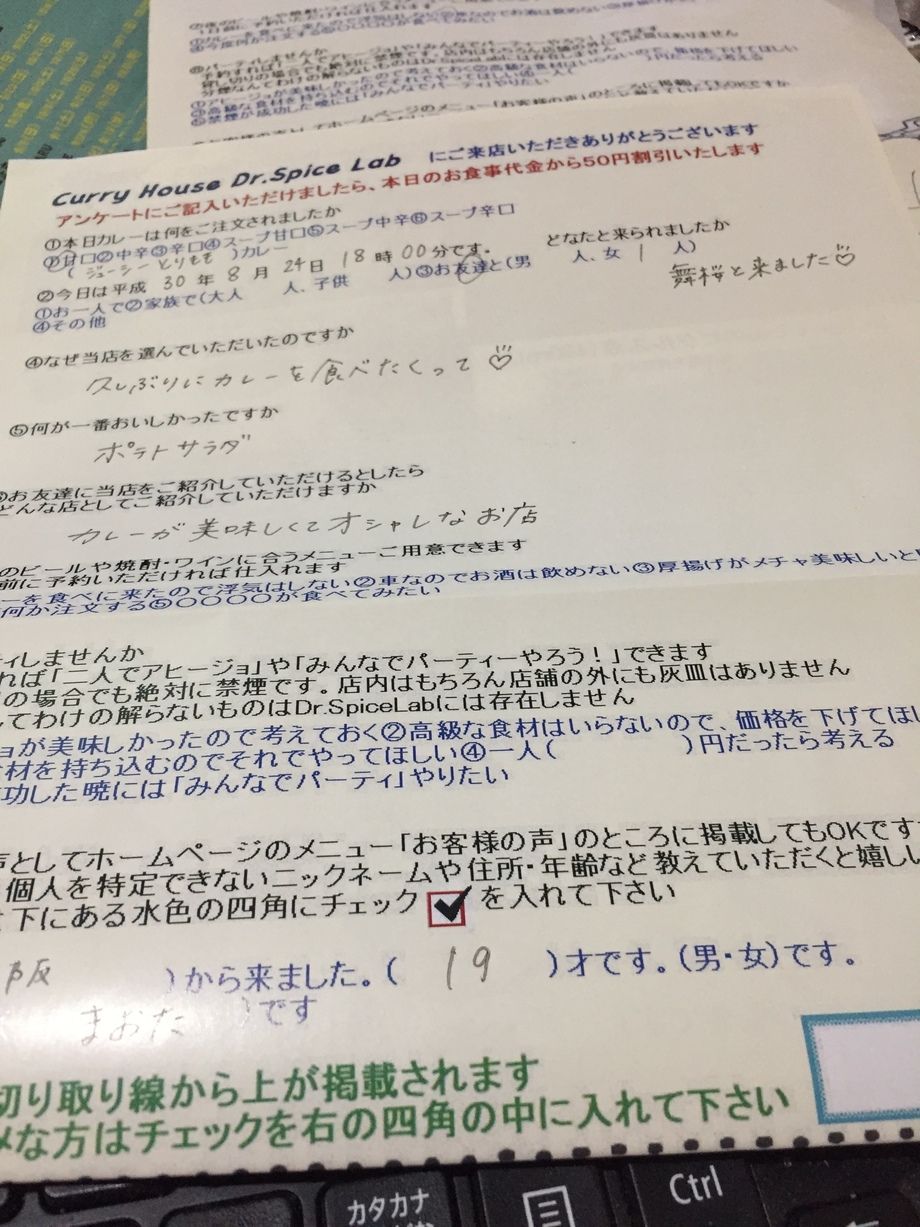 Curry House Dr.Spice Lab にご来店いただきありがとうございます
アンケートにご記入いただけましたら、本日のお食事代金から50円割引いたします
①本日カレーは何をご注文されましたか
①甘口②中辛③辛口④スープ甘口⑤スープ中辛⑥スープ辛口
(ジューシーとりもも)カレー
②今日は平成 30 年 8 月 24 日 18 時 00 分です。 どなたと来られましたか
①お一人で②家族で(大人 人、子供 人)③お友達と(男 人、女 1 人)
④その他
舞桜と来ました♡
④なぜ当店を選んでいただいたのですか
久しぶりにカレーを食べたくって♡
⑤何が一番おいしかったですか
ポテトサラダ
お友達に当店をご紹介していただけるとしたら
どんな店としてご紹介していただけますか
カレーが美味しくてオシャレなお店
のビールや焼酎・ワインに合うメニューご用意できます
前に予約いただければ仕入れます
ーを食べに来たので浮気はしない②車なのでお酒は飲めない③厚揚げがメチャ美味しいと
何か注文する⑤〇〇〇〇が食べてみたい
ィしませんか
れば「二人でアヒージョ」や「みんなでパーティーやろう!」できます
の場合でも絶対に禁煙です。店内はもちろん店舗の外にも灰皿はありません
てわけの解らないものはDr.SpiceLabには存在しません
ョが美味しかったので考えておく②高級な食材はいらないので、価格を下げてほし
材を持ち込むのでそれでやってほしい④一人( )円だったら考える
功した暁には「みんなでパーティ」やりたい
声としてホームページのメニュー「お客様の声」のところに掲載してもOKですか
個人を特定できないニックネームや住所・年齢など教えていただくと嬉し
下にある水色の四角にチェック ✔ を入れて下さい
阪 )から来ました。( 19 )才です。(男・女)です。
まおた )です
切り取り線から上が掲載されます
メな方はチェックを右の四角の中に入れて下さい
カタカナ
Ctrl